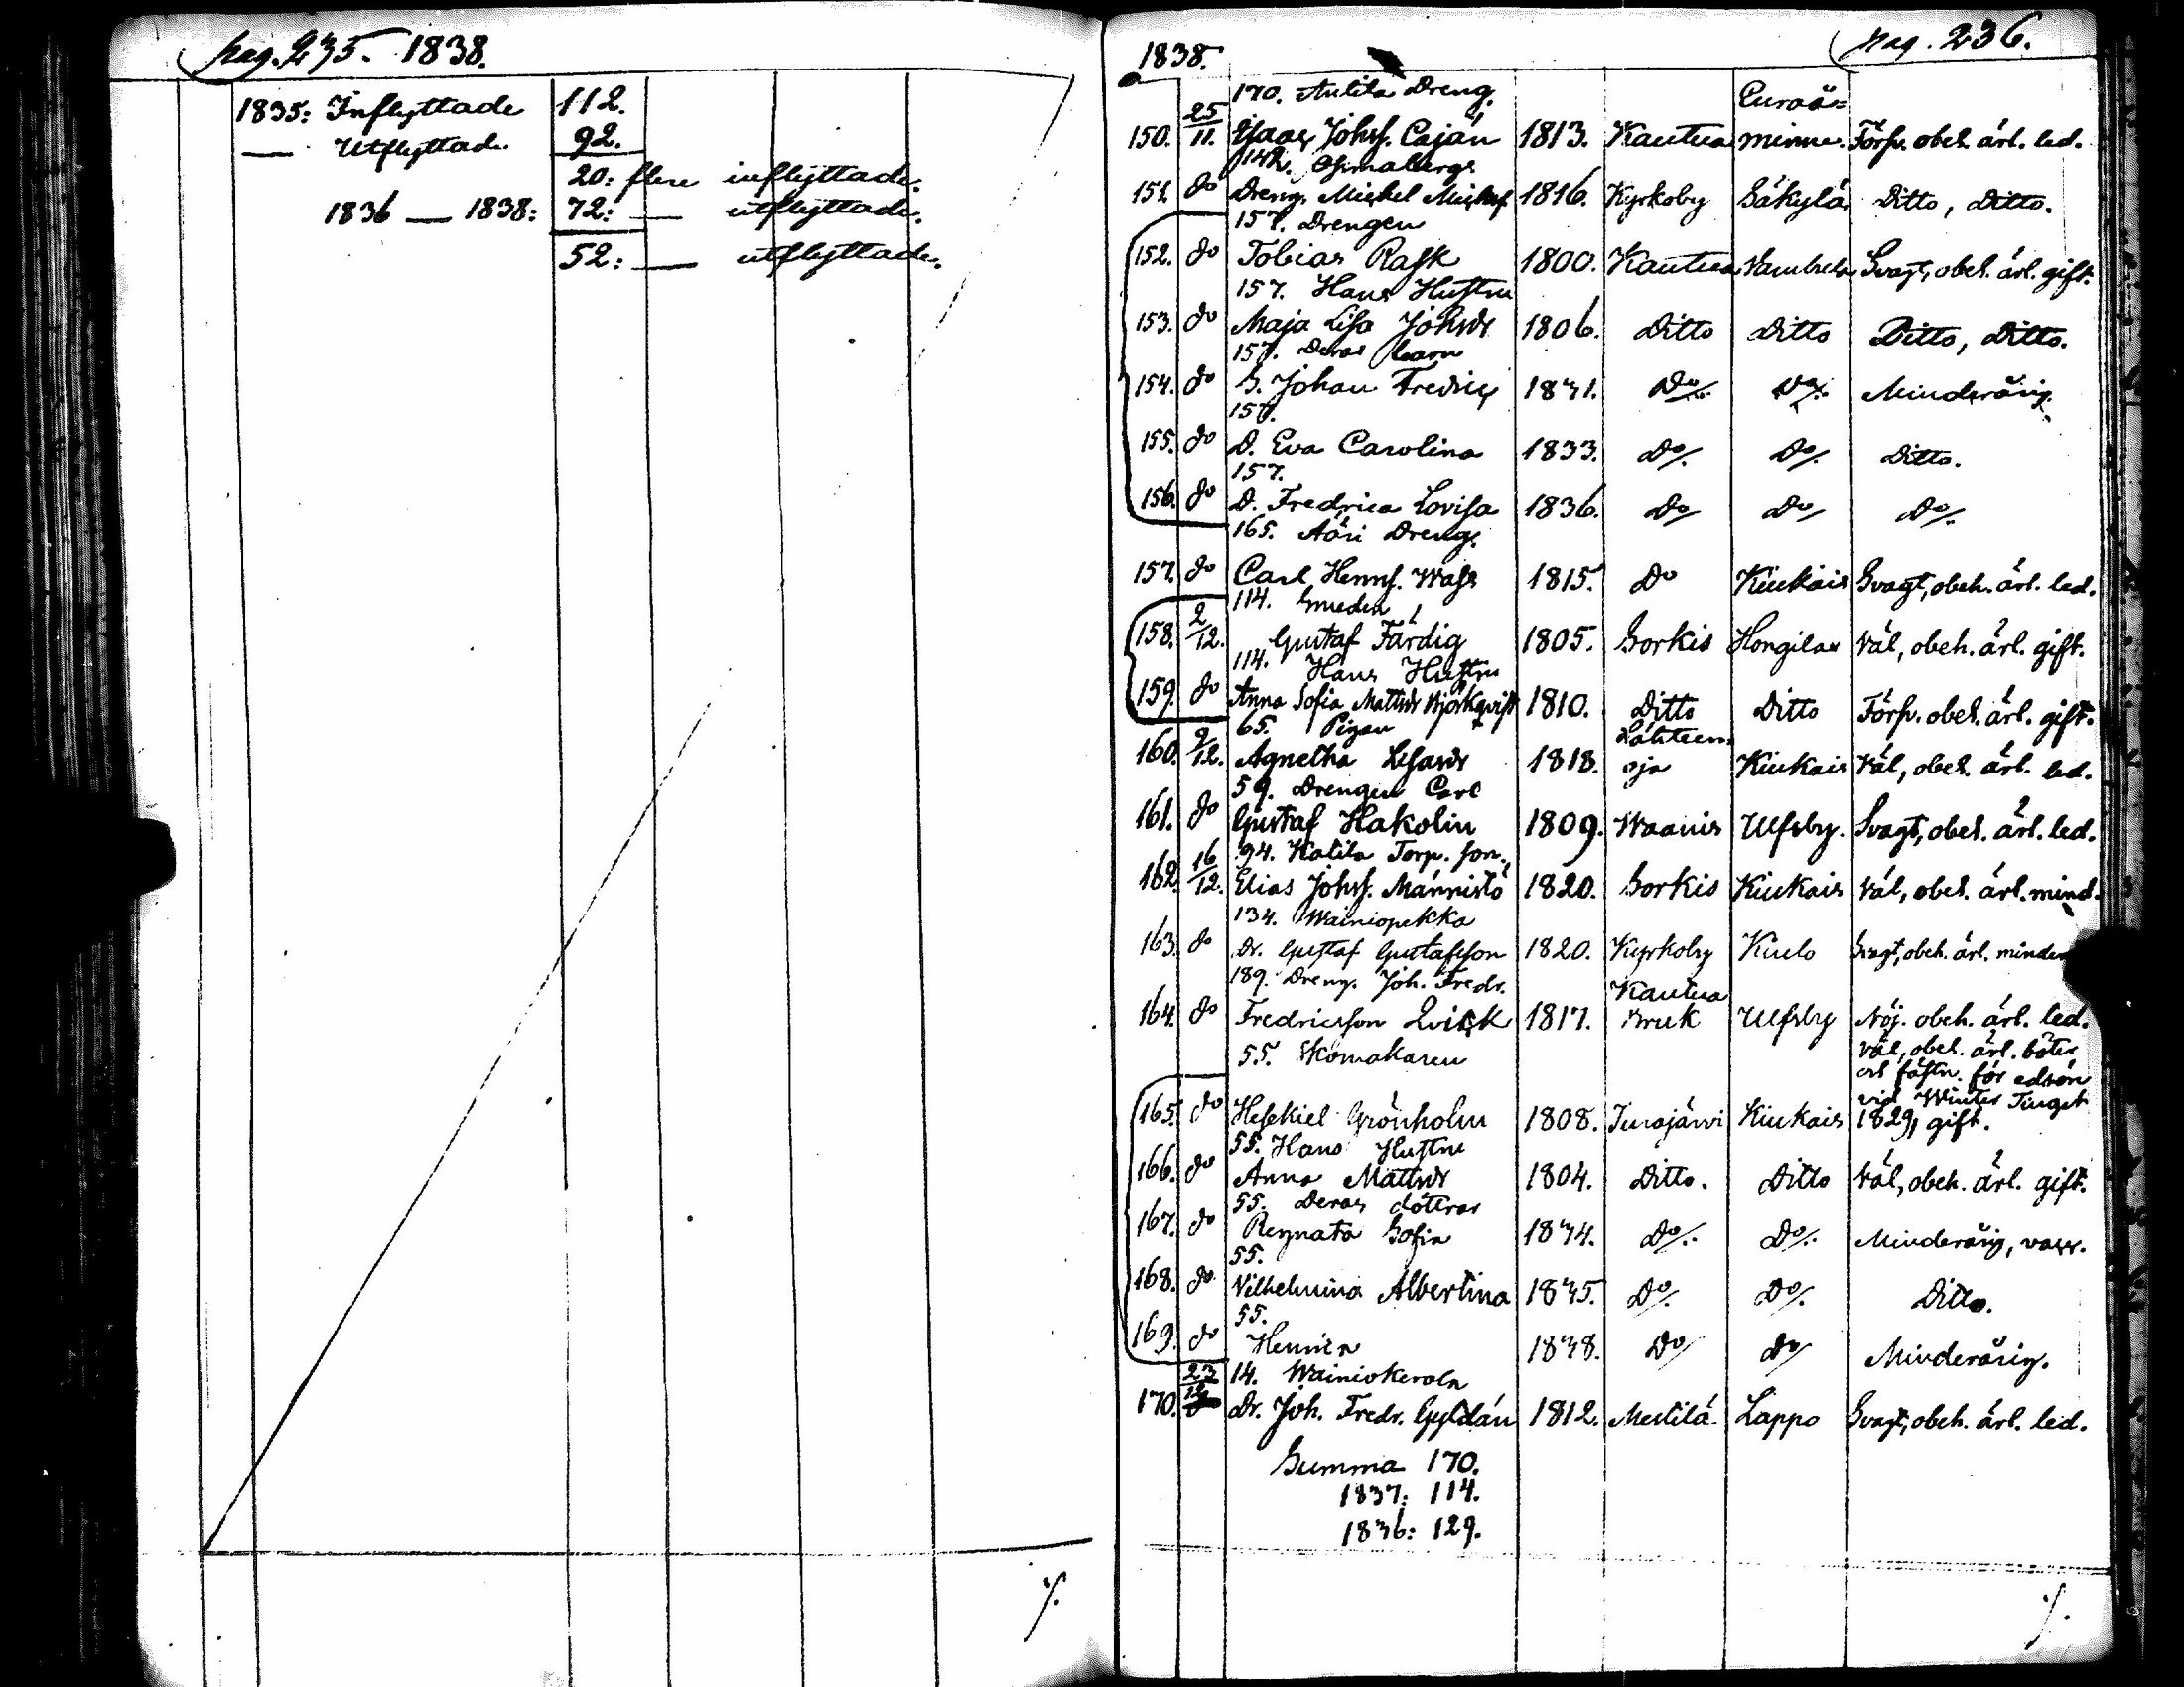 pag. 235. 1838.
1835: Inflyttade 112.
— Utflyttade 92.
20: flere inflyttade.
1836 — 1838: 72: — utflyttade.
52: — utflyttade.
1838. pag. 236.
170. Anlila Dreng. Euraå=
150. 25/11. Isaac Johss. Caján 1813. Kautua minne. Försv. obeh. ärl. led.
142.
151. do Dreng. Michel Michss. 1816. Kyrkoby Säkylä Ditto, Ditto.
157. Drengen
152. do Tobias Rask 1800. Kautua Svagt, obeh. ärl. gift.
157. Hans Hustru
153. do Maja Lisa Johsdr 1806. Ditto Ditto Ditto, Ditto.
157. Deras barn
154. do S. Johan Fredric 1831. Do/. Do/. Minderårig.
157.
155. do D. Eva Carolina 1833. Do/. Do/. Ditto.
157.
156. do D. Fredrica Lovisa 1836. Do/ Do/ Do/.
165. Aöri Dreng.
157. do Carl Henrss. Wass 1815. Do Kiukais Svagt, obeh. ärl. led.
114. Smeden
158. 2/12. Gustaf Färdig 1805. Sorkis Hongilax Väl, obeh. ärl. gift.
114. Hans Hustru
159. do Anna Sofia Mattsdr Björkqvist 1810. Ditto Ditto Försv. obeh. ärl. gift.
65. Pigan Lähteen=
160. 9/12. Agnetha 1818. oja Kiukais Väl, obeh. ärl. led.
59. Drengen Carl
161. do Gustaf Hakolin 1809. Waanis Ulfsby. Svagt, obeh. ärl. led.
94. Katila Torp. son.
162. 16/12. Elias Johss. Männistö 1820. Sorkis Kiukais Väl, obeh. ärl. mind.
134. Wainiopekka
163. do Dr. Gustaf Gustafsson 1820. Kyrkoby Kiulo Svagt, obeh. ärl. minder
189. Dreng. Joh. Fredr. Kautua
164. do Fredricsson Qvick 1817. Bruk Ulfsby Nöj. obeh. ärl. led.
55. Skomakaren Väl, obeh. ärl. böter
för edsön
vid Winter Tinget
165. do Hesekiel Grönholm 1808. Turajärvi Kiukais 1829, gift.
55. Hans Hustru
166. do Anna Mattsdr 1804. Ditto. Ditto Väl, obeh. ärl. gift.
55. Deras döttrar
167. do Regnata Sofia 1834. Do/. Do/. Minderårig, vacc.
55.
168. do Vilhelmina Albertina 1835. Do/. Do/. Ditto.
55.
169. do Henrica 1838. Do/ Do/ Minderårig.
23/12 14. Wainiokerola
170. Dr. Joh. Fredr. Gyldán 1812. Mestilä Lappo Svagt, obeh. ärl. led.
Summa 170.
1837: 114.
1836: 129.
/. /.